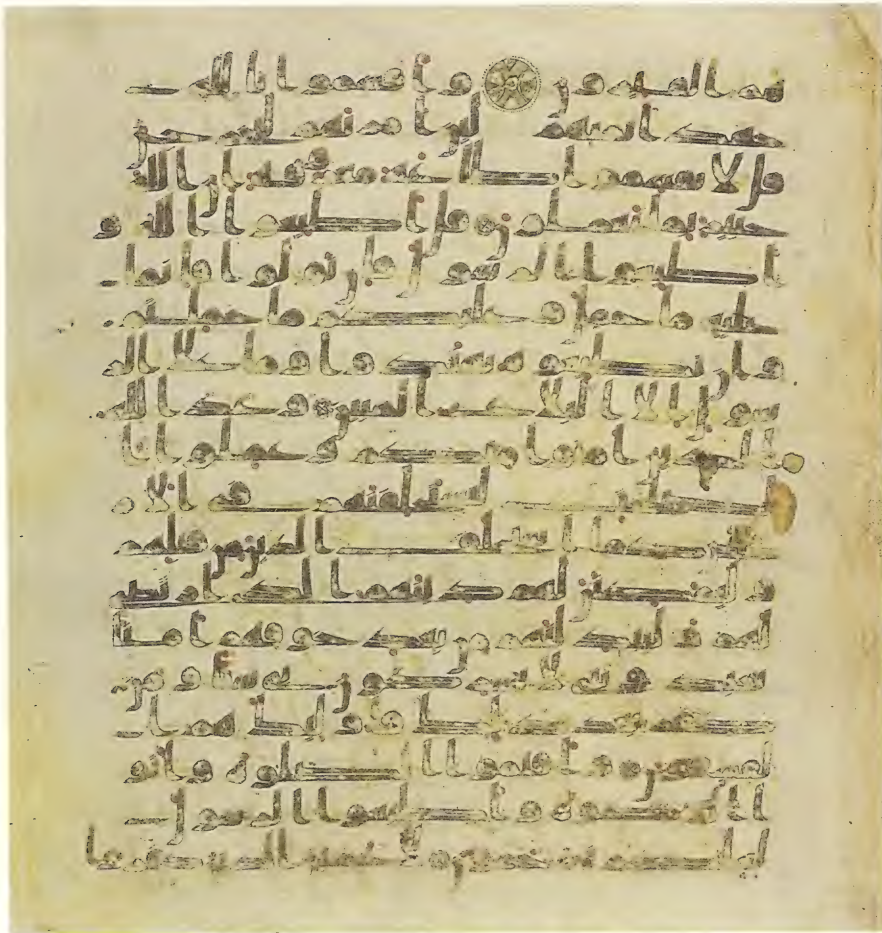 هم الفايزون و اقسموا بالله
جهد ايمنهم لين امرتهم ليخرجن
قل لا تقسموا طاعة معروفة ان الله
خبير بما تعملون قل اطيعوا الله و
اطيعوا الرسول فان تولوا فانما
عليه ما حمل و عليكم ما حملتم
و ان تطيعوه تهتدوا و ما على الر
سول الا البلغ المبين وعد الله
الذين امنوا منكم و عملوا ا
لصلحت ليستخلفنهم في الار
ض كما استخلف الذين من قبلهم
و ليمكنن لهم دينهم الذي ارتضى
لهم و ليبدلنهم من بعد خوفهم امنا
يعبدونني لا يشركون بي شيا و من
كفر بعد ذلك فاوليك هم ا
لفسقون و اقيموا الصلوة و اتو
ا الزكوة و اطيعوا الرسول
لعلكم ترحمون لا تحسبن الذين كفروا